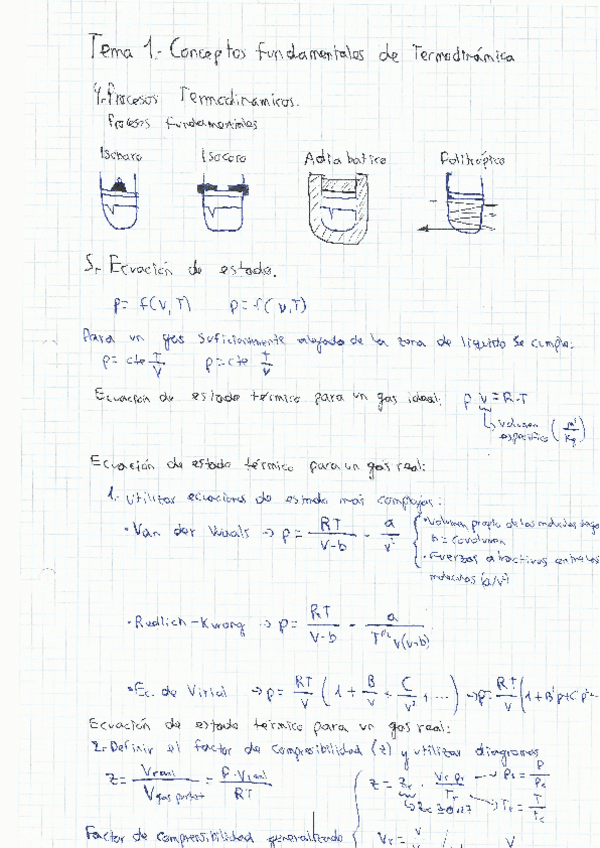 Tema 1.- Conceptos fundamentales de Termodinámica
4.-Procesos Termodinámicos.
Procesos fundamentales
Isobaro Isocoro Adiabatico Politrópico
5.- Ecuación de estado.
p= f(V,T) p=f(v,T)
Para un gas suficientemente alejado de la zona de líquido se cumple:
p= cte T/V p=cte T/v
Ecuación de estado térmico para un gas ideal: p v = R·T
↳ volumen especifico (m³/Kg)
Ecuación de estado térmico para un gas real:
1.- Utilizar ecuaciones de estado más complejas:
• Van der Waals → p = RT/(v-b) - a/v²
• Volumen propio de las moléculas
b = covolumen
• Fuerzas atractivas entre las
moléculas (a/v²)
• Redlich-Kwong → p = RT/(v-b) - a/(T^1/2 v(v+b))
• Ec. de Virial → p = RT/v (1 + B/v + C/v² + ...) → p = RT/v (1+B'p+C'p²
Ecuación de estado térmico para un gas real:
2.- Definir el factor de compresibilidad (z) y utilizar diagramas
z = Vreal/Vgas perfecto = p·Vreal/RT
z = zc · vr pr/Tr → pr = p/pc
↳ zc ≅ 0,27 → Tr = T/Tc
Factor de compresibilidad generalizado